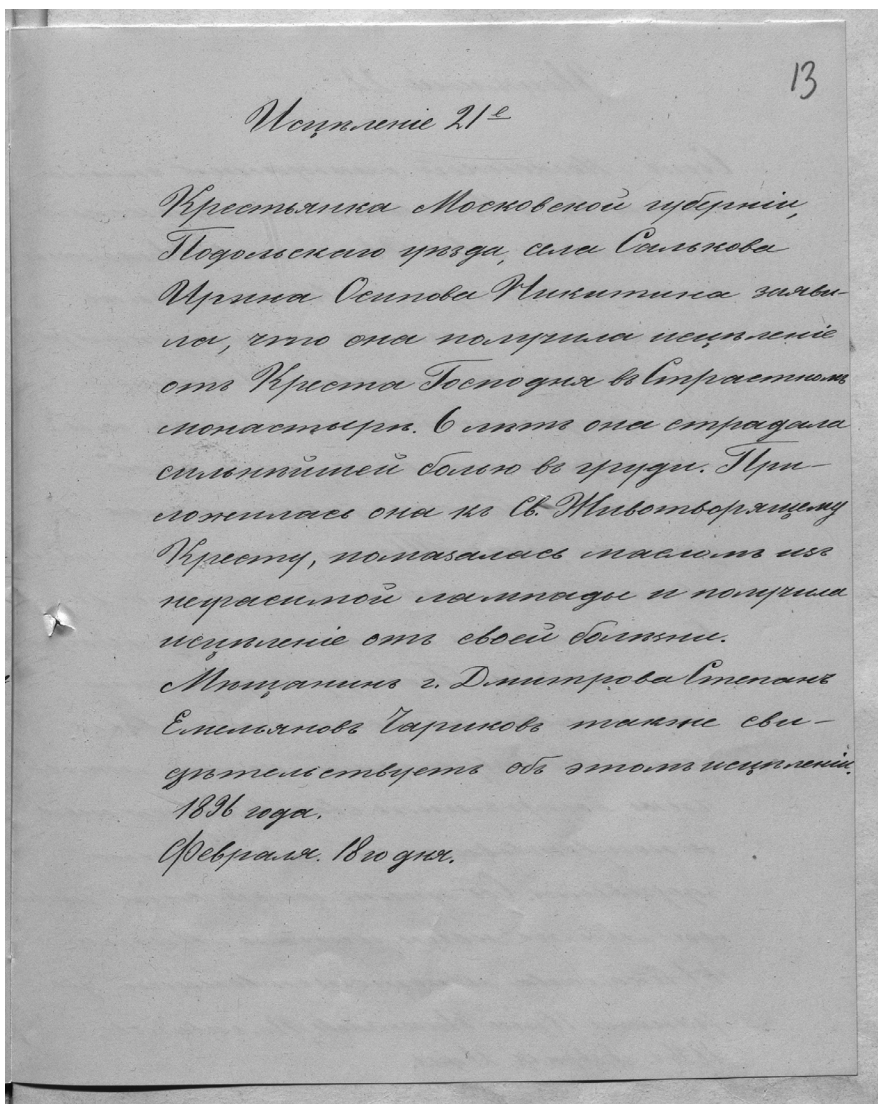 13
Исцѣленіе 21е
Крестьянка Московской губерніи,
Подольскаго уѣзда, села Салькова
Ирина Осипова Никитина заяви-
ла, что она получила исцѣленіе
отъ Креста Господня въ Страстномъ
монастырѣ. 6 лѣтъ она страдала
сильнѣйшей болью въ груди. При-
ложилась она къ Св. Животворящему
Кресту, помазалась масломъ изъ
негасимой лампады и получила
исцѣленіе отъ своей болѣзни.
Мѣщанинъ г. Дмитрова Степанъ
Емельяновъ Чариковъ также сви-
дѣтельствуетъ объ этомъ исцѣленіи.
1896 года.
Февраля. 18го дня.